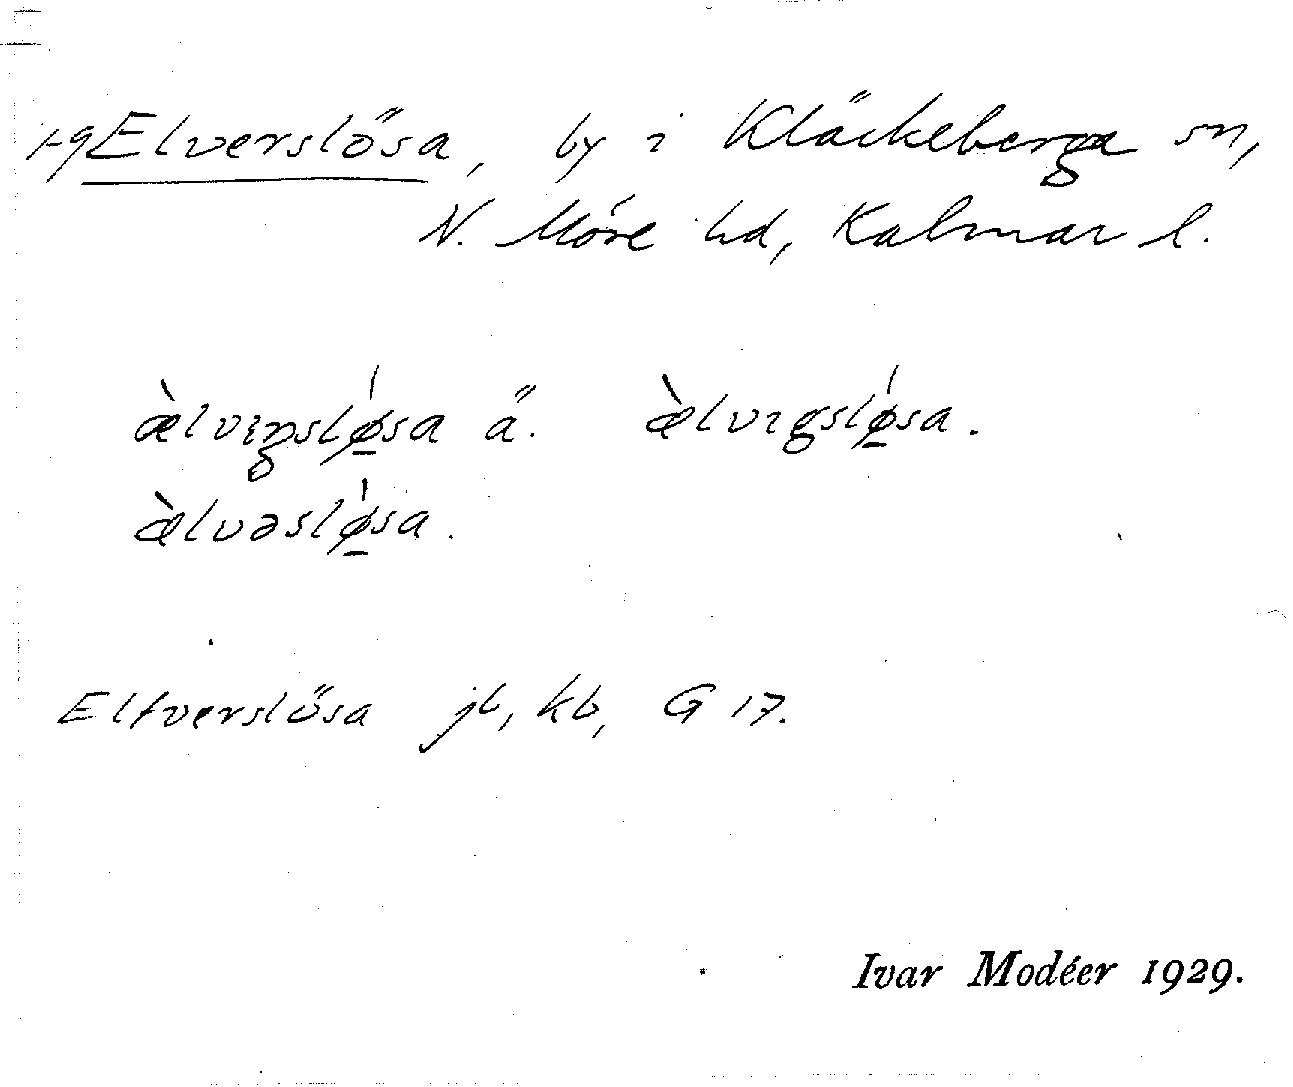 1-9 Elverslösa, by i Kläckeberga sn,
N. Möre hd, Kalmar l.
æ̀lvıŋslǿ̱sa ä. æ̀lvıgslǿ̱sa.
æ̀lvəslǿ̱sa.
Elfverslösa jb, kb, G 17.
Ivar Modéer 1929.